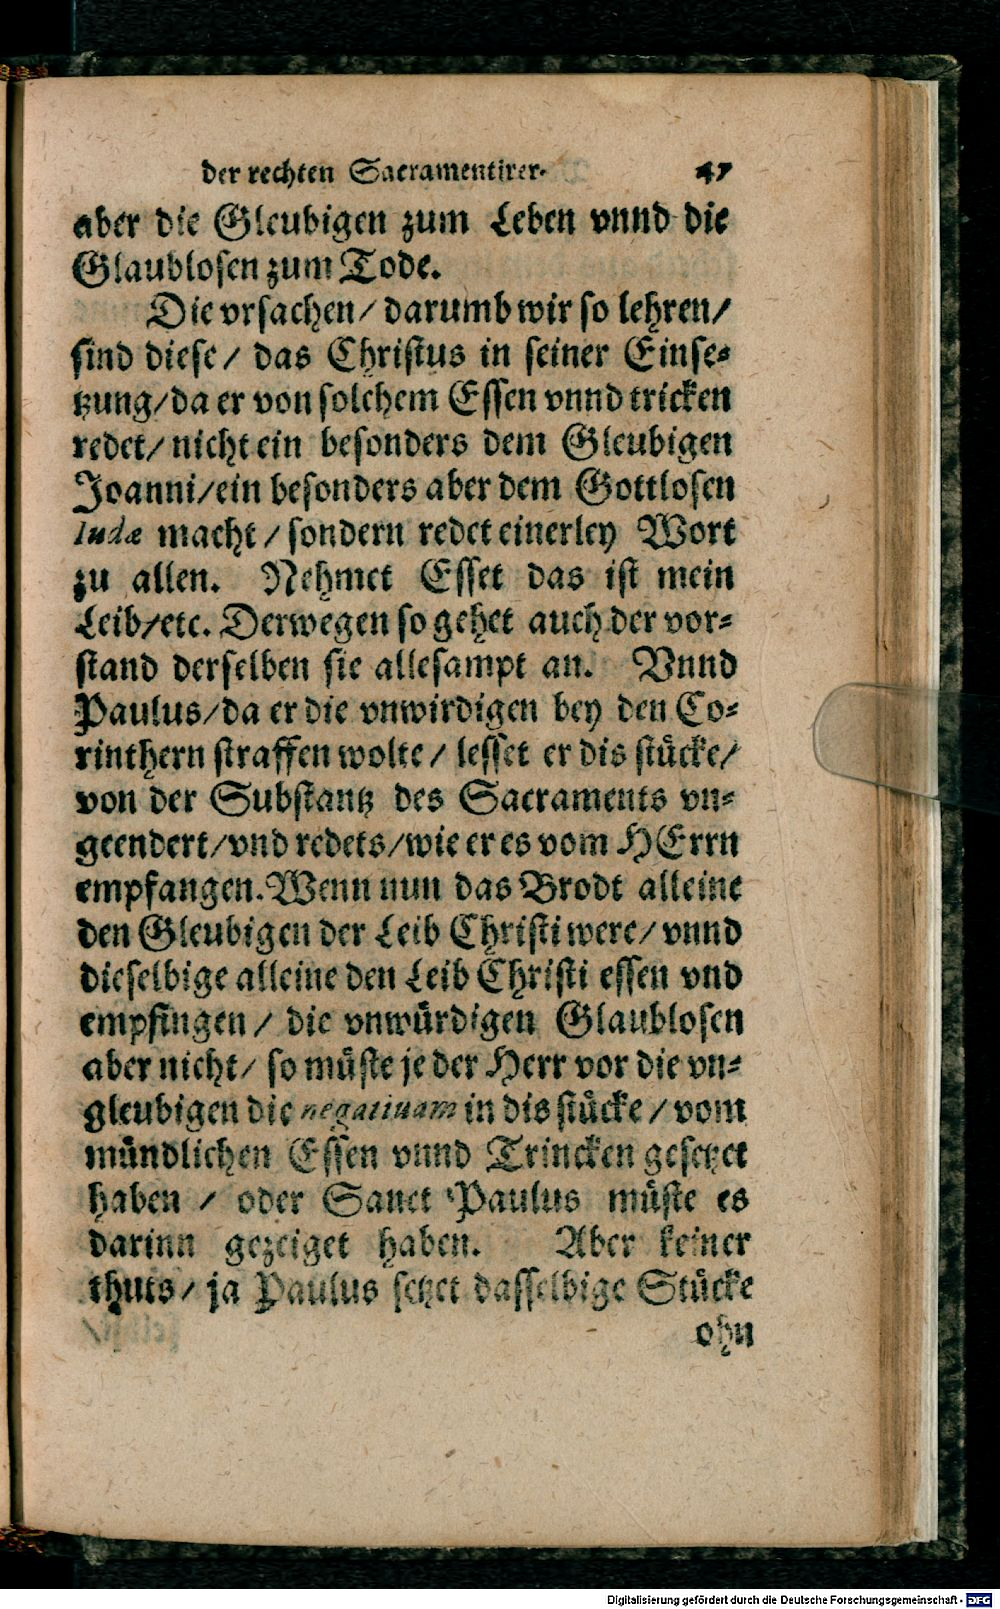 der rechten Sacramentirer. 47
aber die Gleubigen zum Leben vnnd die
Glaublosen zum Tode.
Die vrsachen/ darumb wir so lehren/
sind diese/ das Christus in seiner Einse-
tzung/ da er von solchem Essen vnnd tricken
redet/ nicht ein besonders dem Gleubigen
Joanni/ ein besonders aber dem Gottlosen
Iudæ macht/ sondern redet einerley Wort
zu allen. Nehmet Esset das ist mein
Leib/etc. Derwegen so gehet auch der vor-
stand derselben sie allesampt an. Vnnd
Paulus/ da er die vnwirdigen bey den Co-
rinthern straffen wolte/ lesset er dis stücke/
von der Substantz des Sacraments vn-
geendert/ vnd redets/ wie er es vom HErrn
empfangen. Wenn nun das Brodt alleine
den Gleubigen der Leib Christi were/ vnnd
dieselbige alleine den Leib Christi essen vnd
empfingen/ die vnwürdigen Glaublosen
aber nicht/ so müste je der Herr vor die vn-
gleubigen die negatiuam in dis stücke/ vom
mündlichen Essen vnnd Trincken gesetzet
haben/ oder Sanct Paulus müste es
darinn gezeiget haben. Aber keiner
thuts/ ja Paulus setzet dasselbige Stücke
ohn
Digitalisierung gefördert durch die Deutsche Forschungsgemeinschaft - DFG